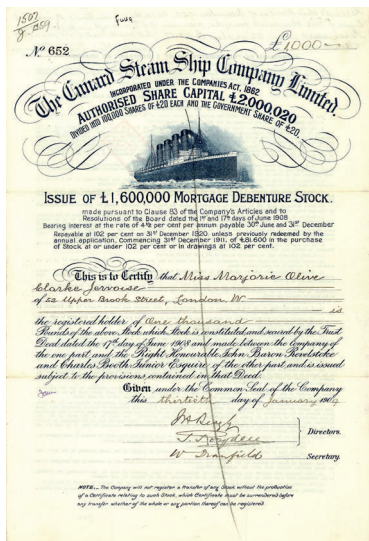 1507
Nº 652
£1,000
The Cunard Steam Ship Company Limited.
INCORPORATED UNDER THE COMPANIES ACT, 1862
AUTHORISED SHARE CAPITAL £2,000,020
DIVIDED INTO 100,000 SHARES OF £20 EACH AND THE GOVERNMENT SHARE OF £20.
ISSUE OF £1,600,000 MORTGAGE DEBENTURE STOCK.
made pursuant to Clause 83 of the Company's Articles and to
Resolutions of the Board dated the 1st and 17th days of June 1908
Bearing interest at the rate of 4½ per cent per annum payable 30th June and 31st December
Repayable at 102 per cent on 31st December 1920 unless previously redeemed by the
annual application, commencing 31st December 1911, of £81,600 in the purchase
of Stock at or under 102 per cent or in drawings at 102 per cent.
This is to Certify that Miss Marjorie Olive
Clarke Jervoise
of 52 Upper Brook Street, London W. is
the registered holder of One thousand
Pounds of the above Stock which Stock is constituted and secured by the Trust
Deed dated the 17th day of June 1908 and made between the Company of
the one part and the Right Honourable John Baron Revelstoke
and Charles Booth Junior Esquire of the other part and is issued
subject to the provisions contained in that Deed.
Given under the Common Seal of the Company
this thirtieth day of January 1909
Directors.
Secretary.
NOTE... The Company will not register a transfer of any Stock without the production
of a Certificate relating to such Stock, which Certificate must be surrendered before
any transfer whether of the whole or any portion thereof can be registered